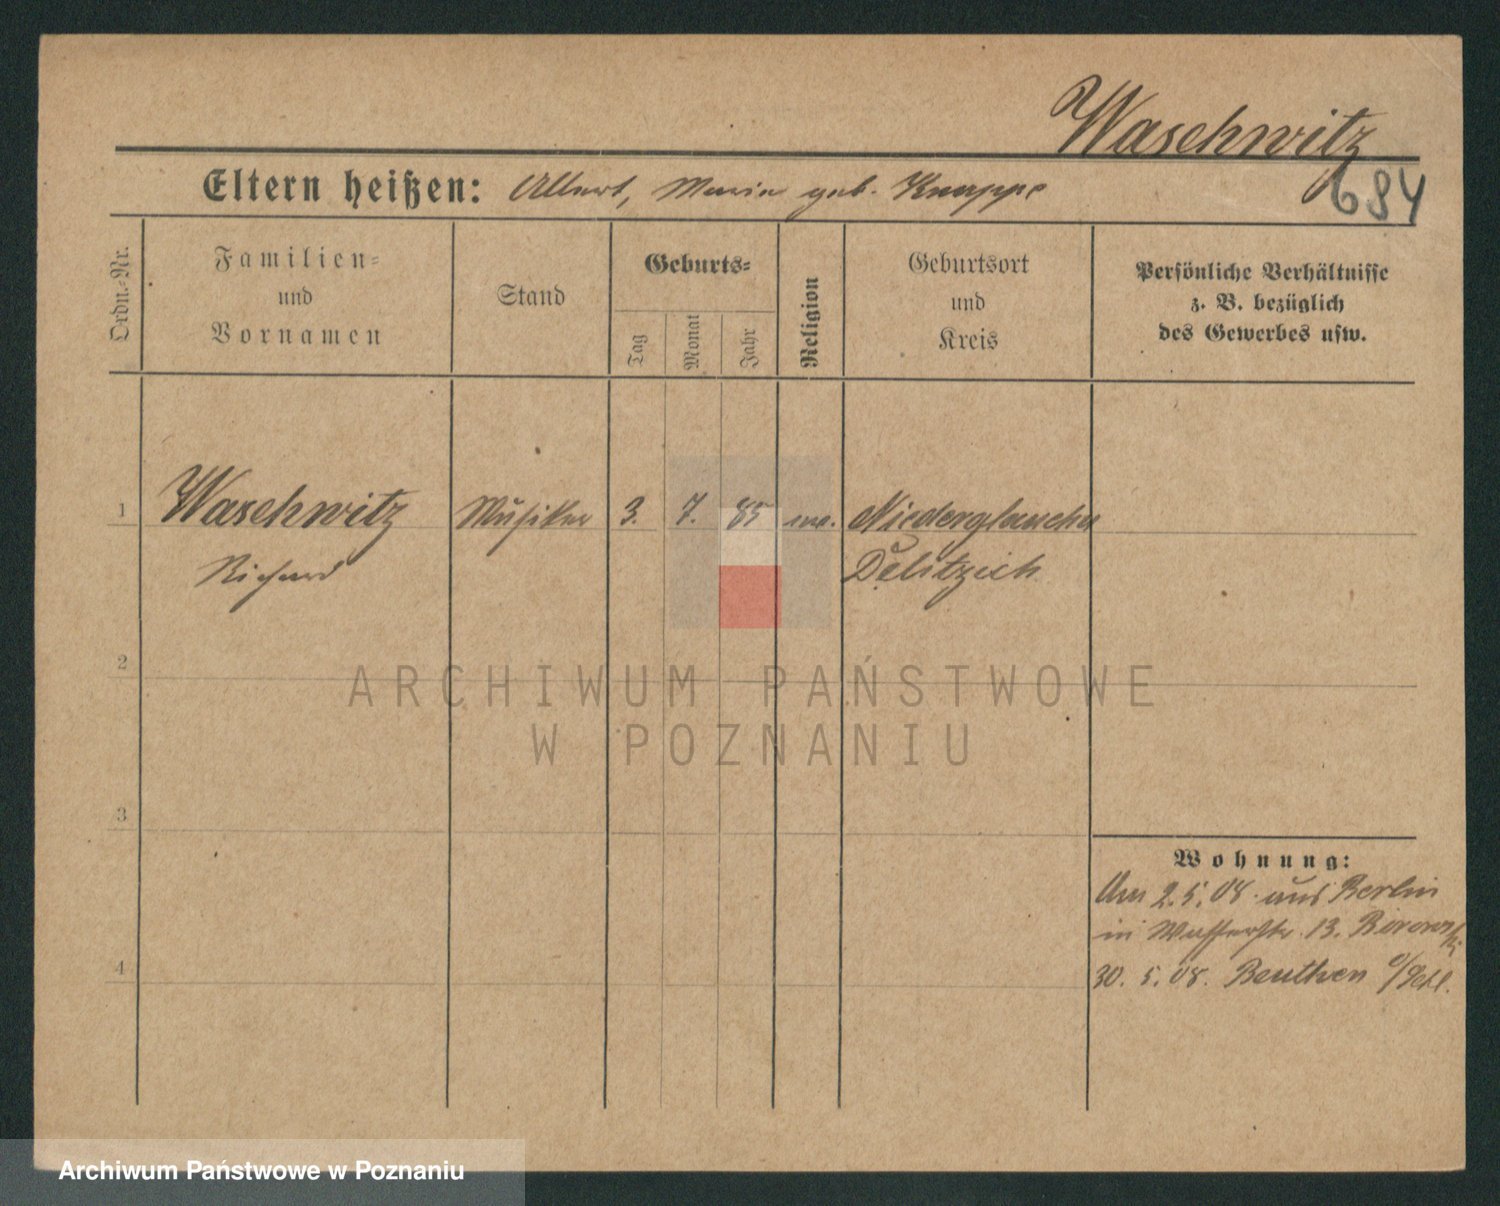 Waschwitz
Eltern heißen: Albert, Maria geb. Knappe
684
Ordn.-Nr.
Familien-
und
Vornamen
Stand
Geburts-
Tag
Monat
Jahr
Religion
Geburtsort
und
Kreis
Persönliche Verhältnisse
z. B. bezüglich
des Gewerbes usw.
1 Waschwitz Musiker 3. 7. 85 Niederglaucha
Richard Delitzsch
2
ARCHIWUM PAŃSTWOWE
W POZNANIU
3
Wohnung:
Am 2.5.08 aus Berlin
in Wasserstr. 13.
4
30. 5. 08. Beuthen o/Schl.
Archiwum Państwowe w Poznaniu